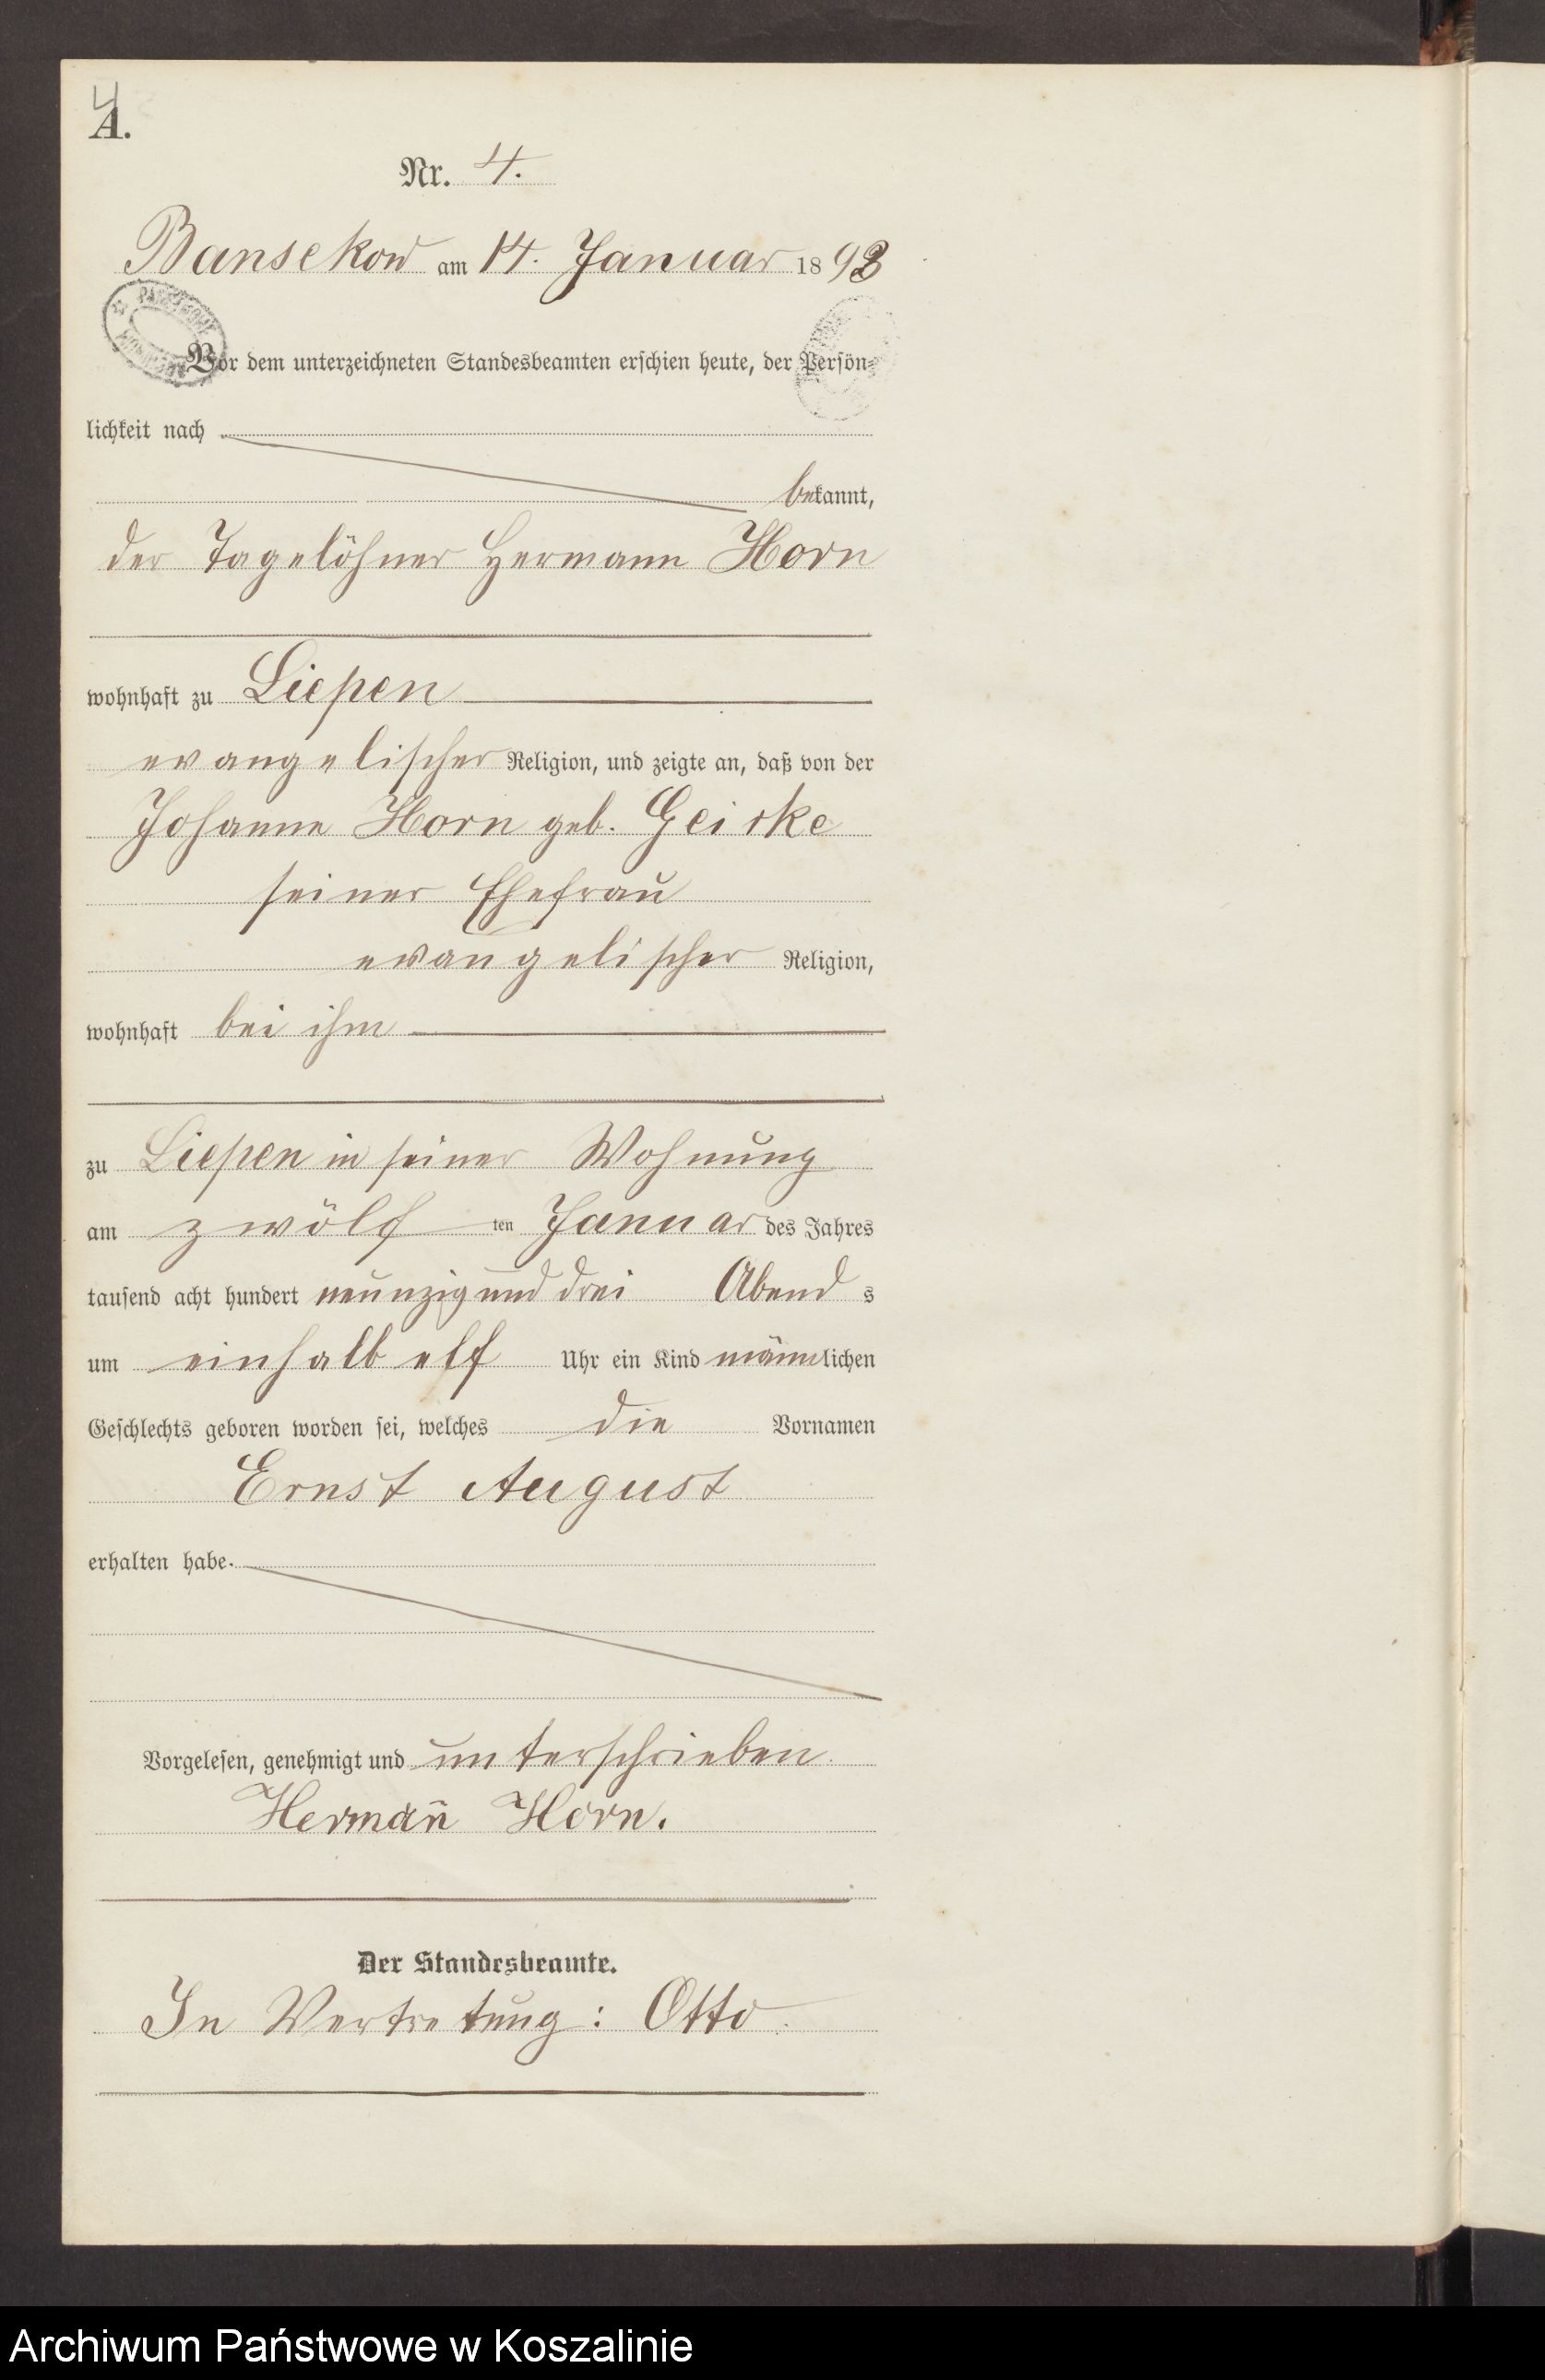 4
A.
Nr. 4.
Bansekow am 14. Januar 1893
Vor dem unterzeichneten Standesbeamten erschien heute, der Persön-
lichkeit nach
bekannt,
der Tagelöhner Hermann Horn
wohnhaft zu Liepen
evangelischer Religion, und zeigte an, daß von der
Johanne Horn geb. Geirke
seiner Ehefrau
evangelischer Religion,
wohnhaft bei ihm
zu Liepen in seiner Wohnung
am zwölf ten Januar des Jahres
tausend acht hundert neunzig und drei Abend s
um einhalb elf Uhr ein Kind männlichen
Geschlechts geboren worden sei, welches die Vornamen
Ernst August
erhalten habe.
Vorgelesen, genehmigt und unterschrieben.
Hermañ Horn.
Der Standesbeamte.
In Vertretung: Otto.
Archiwum Państwowe w Koszalinie